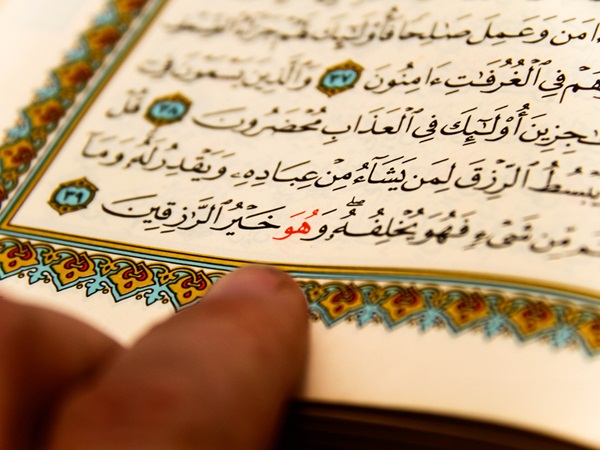 ءَامَنَ وَعَمِلَ صَٰلِحًا فَأُوْلَٰٓئِكَ لَهُمْ جَزَآءُ
هُمْ فِي ٱلْغُرُفَٰتِ ءَامِنُونَ ٣٧ وَٱلَّذِينَ يَسْعَوْنَ فِيٓ
عَٰجِزِينَ أُوْلَٰٓئِكَ فِي ٱلْعَذَابِ مُحْضَرُونَ ٣٨ قُلْ
يَبْسُطُ ٱلرِّزْقَ لِمَن يَشَآءُ مِنْ عِبَادِهِۦ وَيَقْدِرُ لَهُۥ وَمَآ
مِّن شَيْءٍ فَهُوَ يُخْلِفُهُۥۖ وَهُوَ خَيْرُ ٱلرَّٰزِقِينَ ٣٩